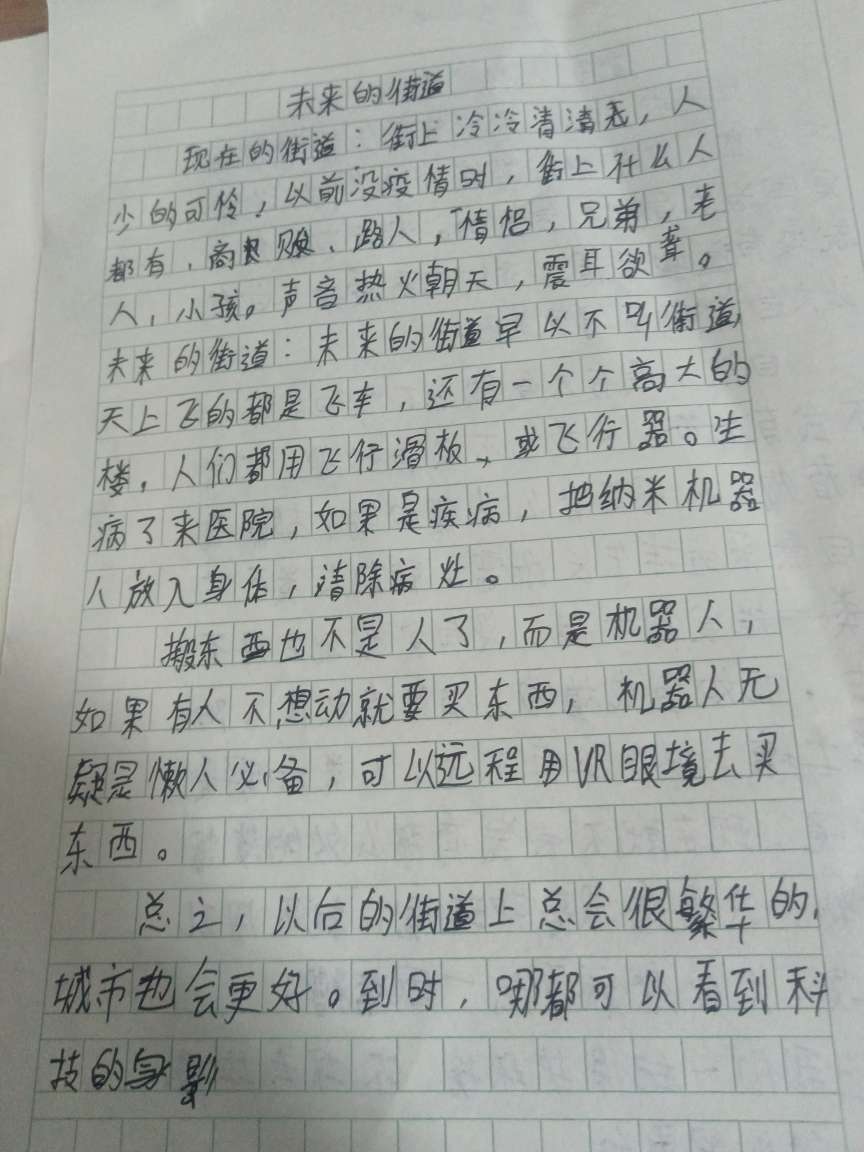 未来的街道
现在的街道：街上冷冷清清无，人
少的可怜，以前没疫情时，街上什么人
都有，商贩、路人，情侣，兄弟，老
人，小孩。声音热火朝天，震耳欲聋。
未来的街道：未来的街道早以不叫街道，
天上飞的都是飞车，还有一个个高大的
楼，人们都用飞行滑板、或飞行器。生
病了来医院，如果是疾病，把纳米机器
人放入身体，清除病灶。
搬东西也不是人了，而是机器人，
如果有人不想动就要买东西，机器人无
疑是懒人必备，可以远程用VR眼境去买
东西。
总之，以后的街道上总会很繁华的，
城市也会更好。到时，哪都可以看到科
技的身影